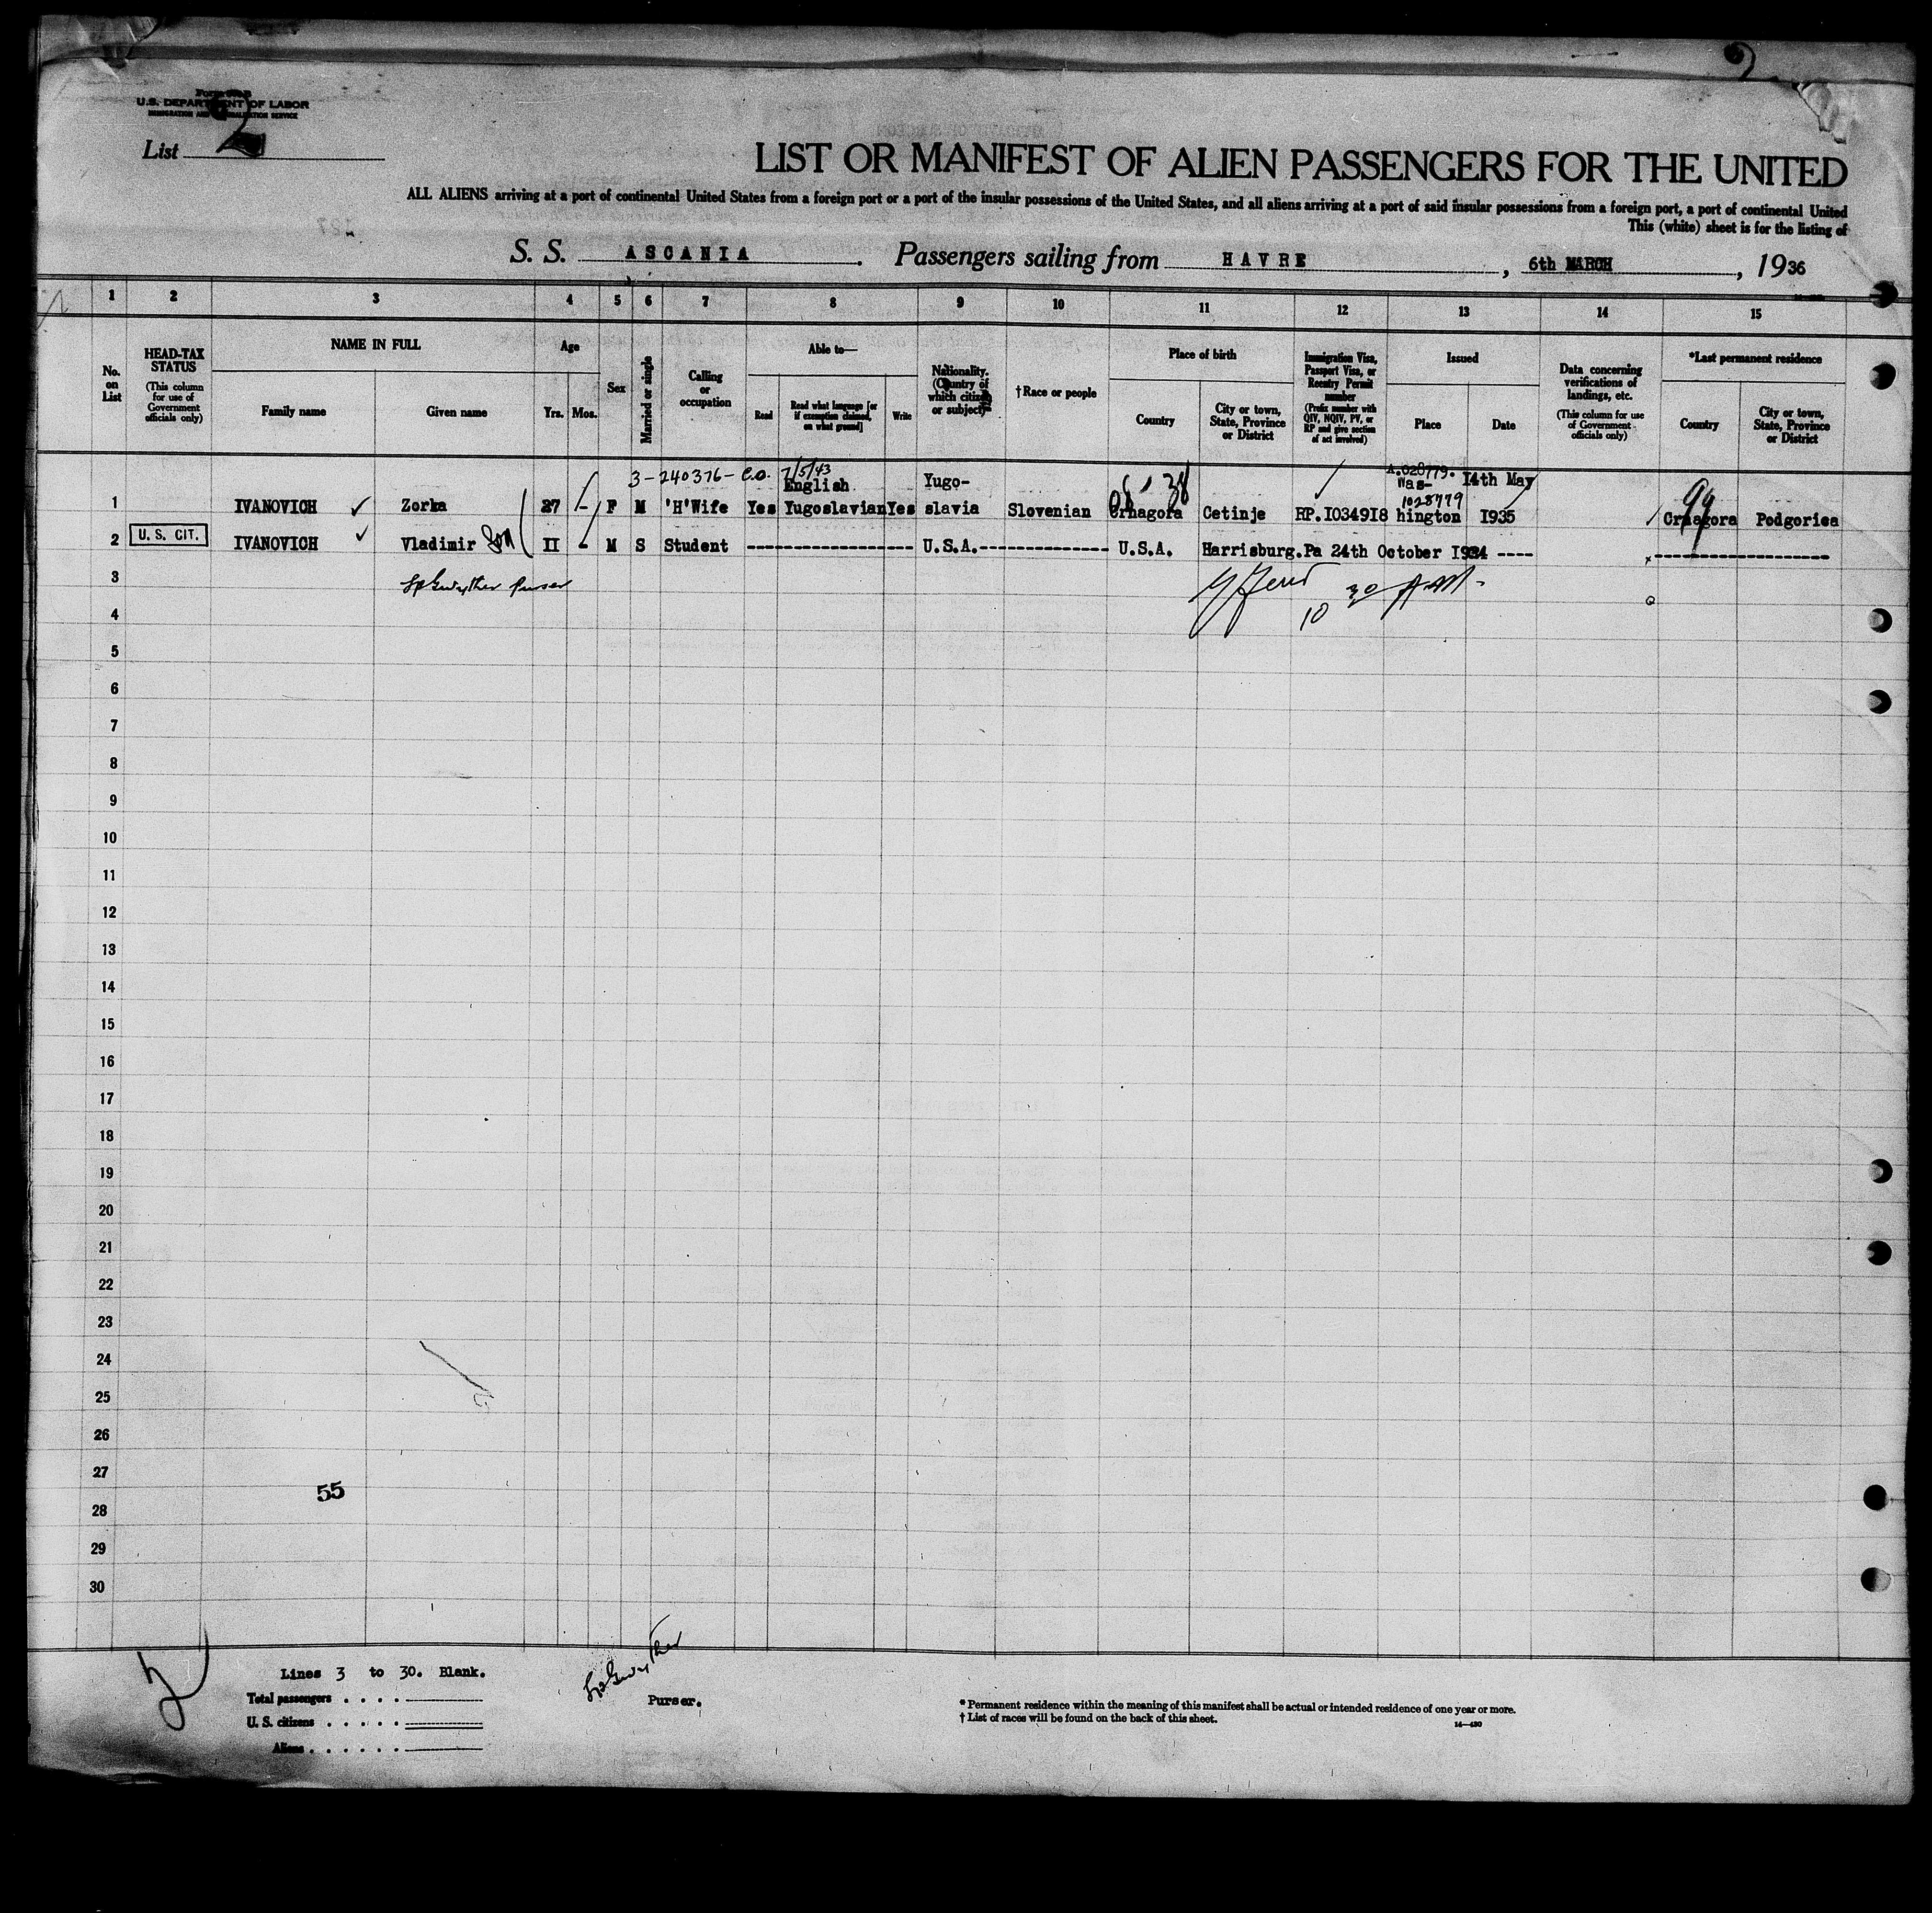 2
U.S. DEPARTMENT OF LABOR
IMMIGRATION AND NATURALIZATION SERVICE
List 2
LIST OR MANIFEST OF ALIEN PASSENGERS FOR THE UNITED
ALL ALIENS arriving at a port of continental United States from a foreign port or a port of the insular possessions of the United States, and all aliens arriving at a port of said insular possessions from a foreign port, a port of continental United
This (white) sheet is for the listing of
S. S. ASCANIA. Passengers sailing from HAVRE, 6th MARCH, 1936
1 2 3 4 5 6 7 8 9 10 11 12 13 14 15
No. on List
HEAD-TAX STATUS
(This column for use of Government officials only)
NAME IN FULL
Family name
Given name
Age
Yrs. Mos.
Sex
Married or single
Calling or occupation
Able to—
Read
Read what language [or if exemption claimed, on what ground]
Write
Nationality. (Country of which citizen or subject)
† Race or people
Place of birth
Country
City or town, State, Province or District
Immigration Visa, Passport Visa, or Reentry Permit number
(Prefix number with QIV, NQIV, PV, or RP and give section of act involved)
Issued
Place
Date
Data concerning verifications of landings, etc.
(This column for use of Government officials only)
*Last permanent residence
Country
City or town, State, Province or District
3-240376-C.O. 7/5/43
English Yugo- A.028779. Was- 14th May
1028779
1 IVANOVICH Zorka 37 - F M 'H'Wife Yes Yugoslavian Yes slavia Slovenian Crnagora Cetinje RP.I034918 hington I935 Crnagora Podgorica
99
2 U. S. CIT. IVANOVICH Vladimir Son II - M S Student ---- U.S.A.---- U.S.A. Harrisburg.Pa 24th October I924 ----
3 Purser
10 30 AM
4
5
6
7
8
9
10
11
12
13
14
15
16
17
18
19
20
21
22
23
24
25
26
27
55
28
29
30
2
Lines 3 to 30. Blank.
Total passengers . . . .
U. S. citizens . . . . .
Aliens . . . . . .
Purser.
* Permanent residence within the meaning of this manifest shall be actual or intended residence of one year or more.
† List of races will be found on the back of this sheet.
14—430